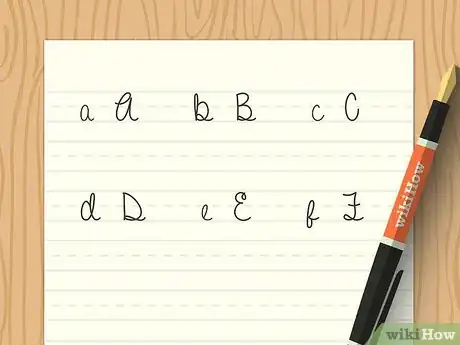 a A b B c C
d D e E f F
wikiHow
wikiHow